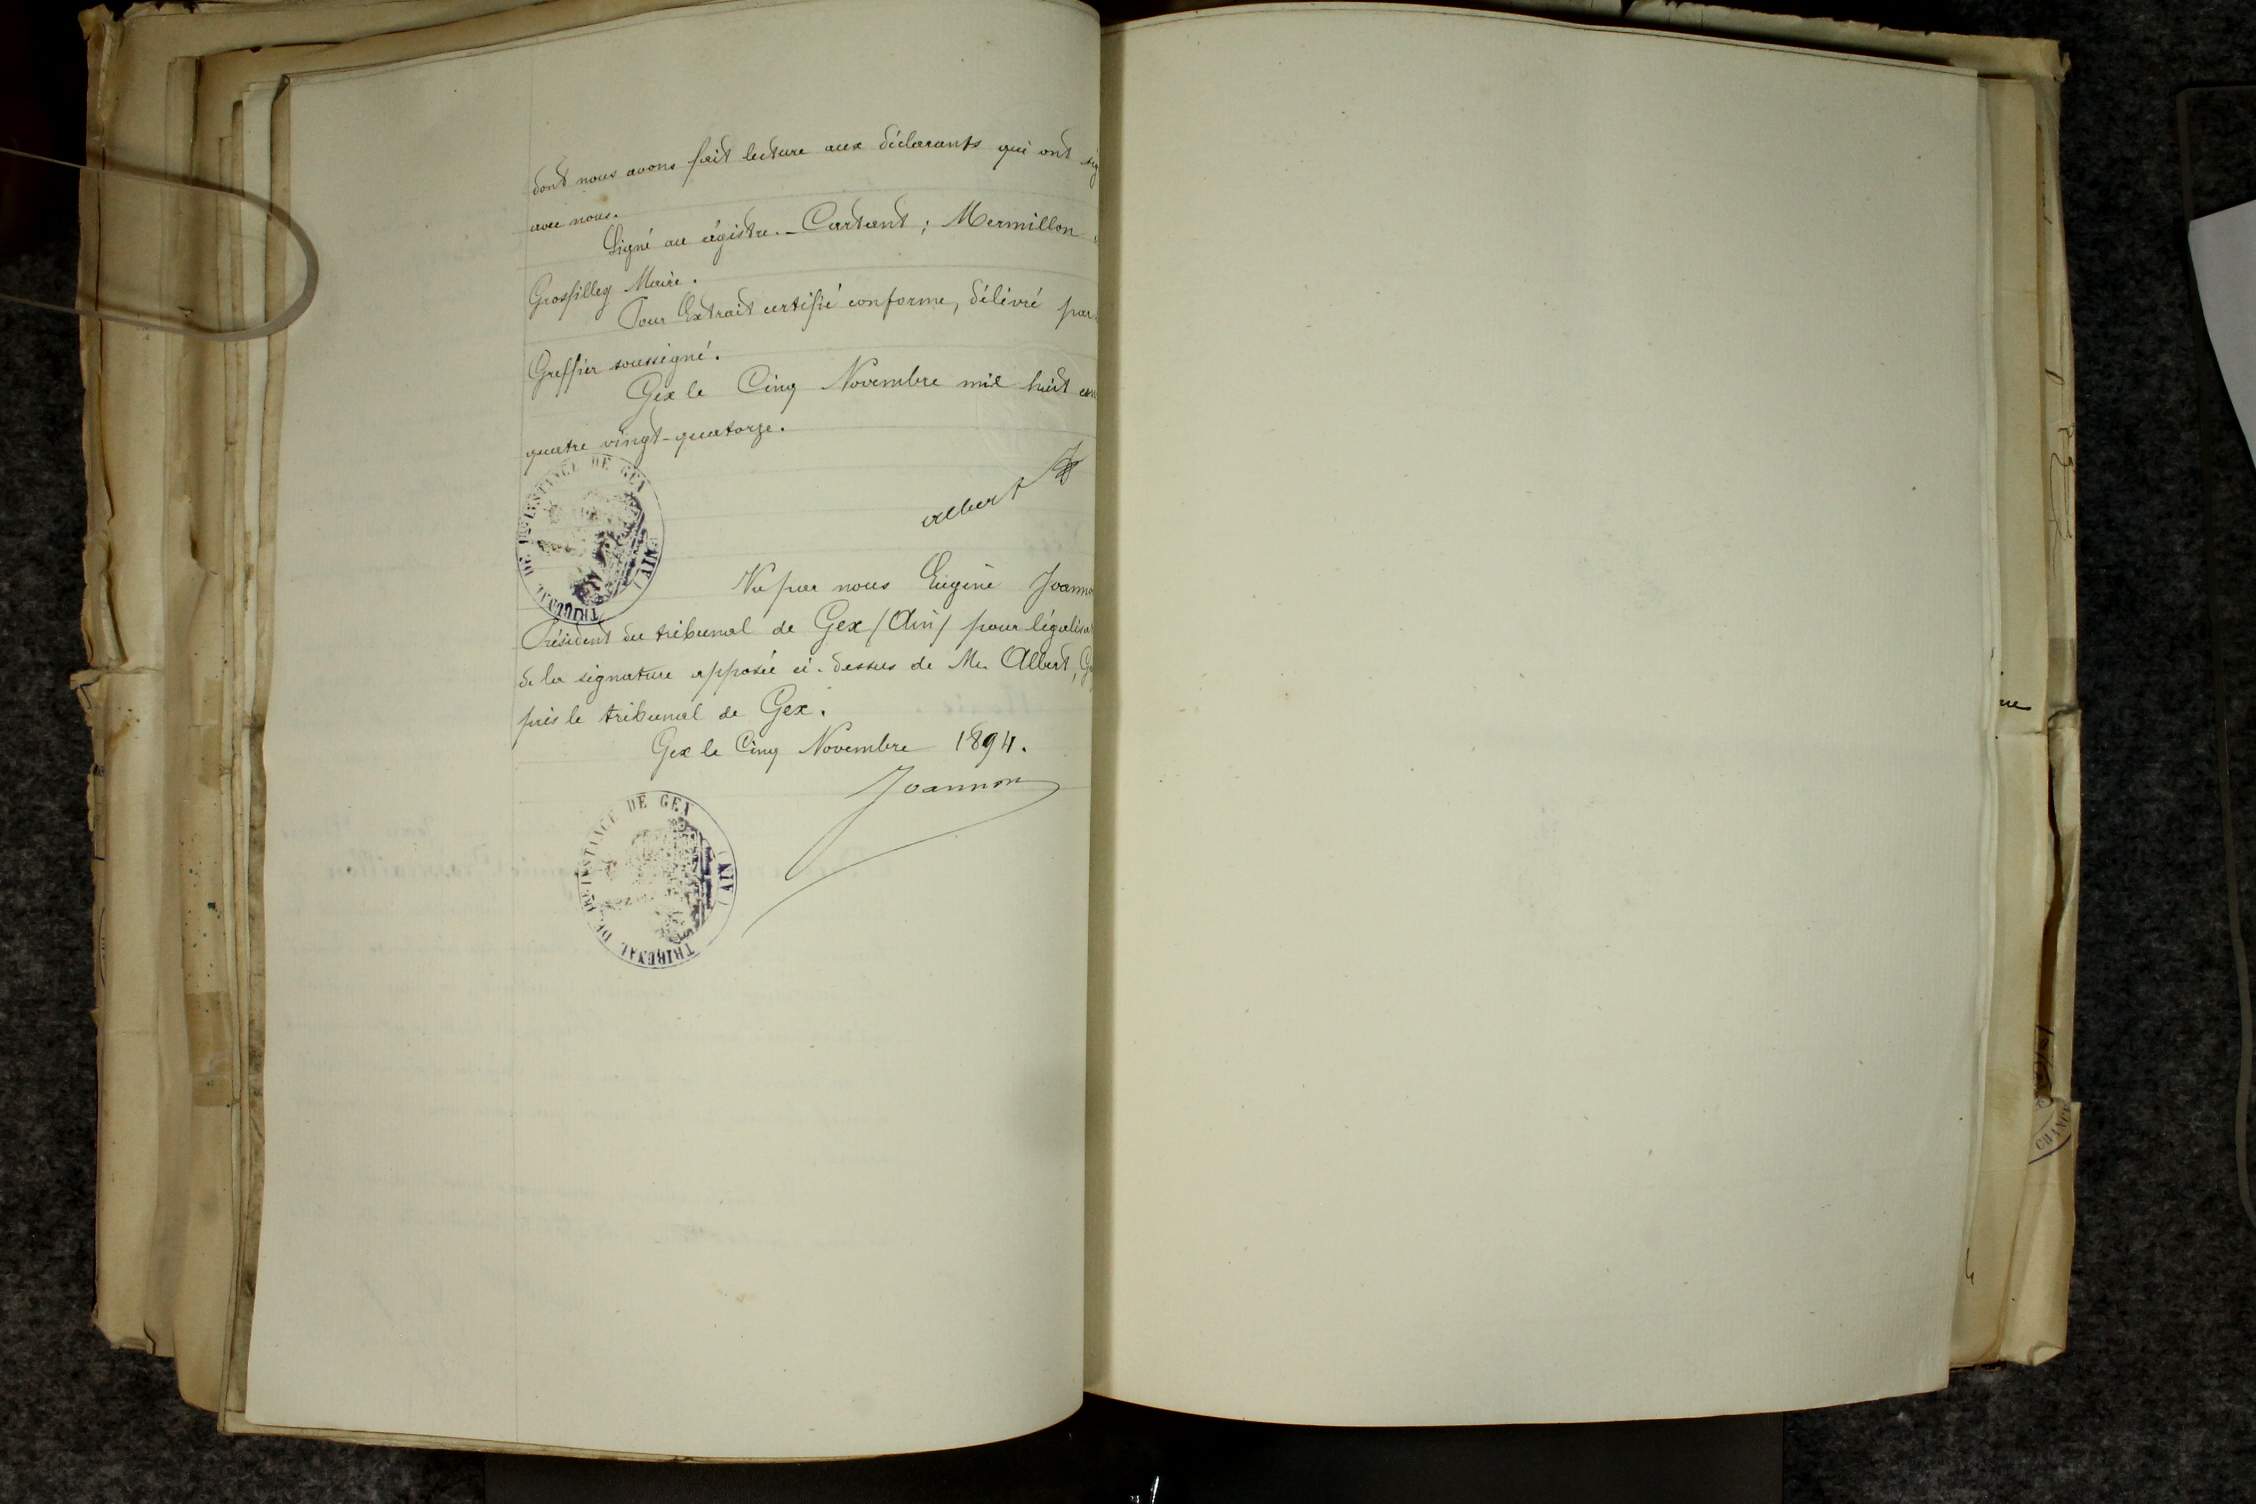 dont nous avons fait lecture aux déclarants qui ont sig
avec nous.
Signé au régistre. – Cartant ; Mermillon
Grosfilley Maire.
Pour Extrait certifié conforme, délivré par
Greffier soussigné.
Gex le Cinq Novembre mil huit cen
quatre vingt-quatorze.
albert
TRIBUNAL DE 1RE INSTANCE DE GEX (AIN)
Vu par nous Eugène Joannon
Président du tribunal de Gex /Ain/ pour légalisa
de la signature apposée ci-dessus de Me Albert, G
près le tribunal de Gex.
Gex le Cinq Novembre 1894.
Joannon
TRIBUNAL DE 1RE INSTANCE DE GEX (AIN)